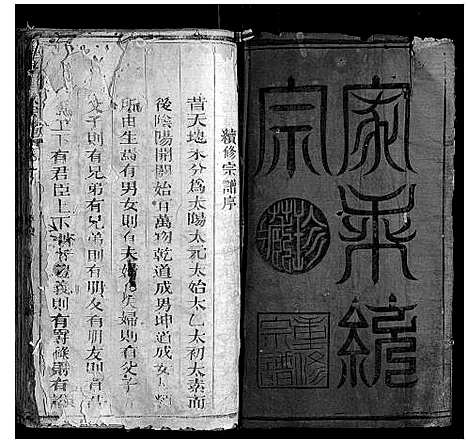 家乘統
宗
重修
宗譜
續修宗譜序
昔天地未分爲太陽太元太始太乙太初太素而
後陰陽開闢始有萬物乾道成男坤道成女
所由生焉有男女則有夫婦有夫婦則有父子
父子則有兄弟有兄弟則有朋友有朋友則有君
上下有君臣上下 義則有